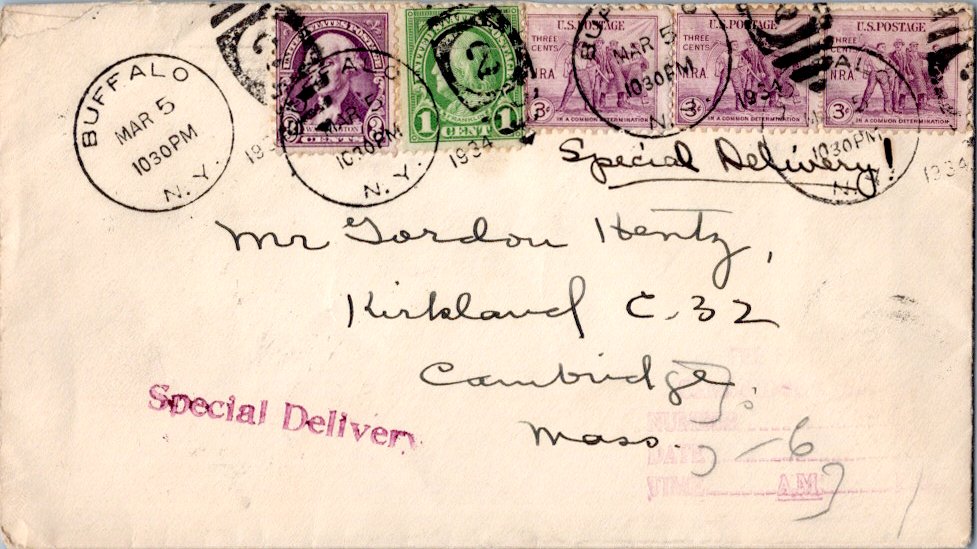 BUFFALO
MAR 5
1030PM
N.Y.
1934
UNITED STATES POSTAGE
3 WASHINGTON 3
CENTS
UNITED STATES POSTAGE
1 FRANKLIN 1
CENT
1030PM
N.Y.
1934
U.S. POSTAGE
THREE CENTS
NRA
3¢
IN A COMMON DETERMINATION
BUFFALO
MAR 5
1030PM
N.Y.
1934
U.S. POSTAGE
THREE CENTS
NRA
3¢
IN A COMMON DETERMINATION
U.S. POSTAGE
THREE CENTS
NRA
3¢
IN A COMMON DETERMINATION
1030PM
N.Y.
1934
Special Delivery!
Mr Gordon Hentz,
Kirkland C-32
Cambridge,
Mass.
Special Delivery
NUMBER
DATE 3-6
TIME AM 7